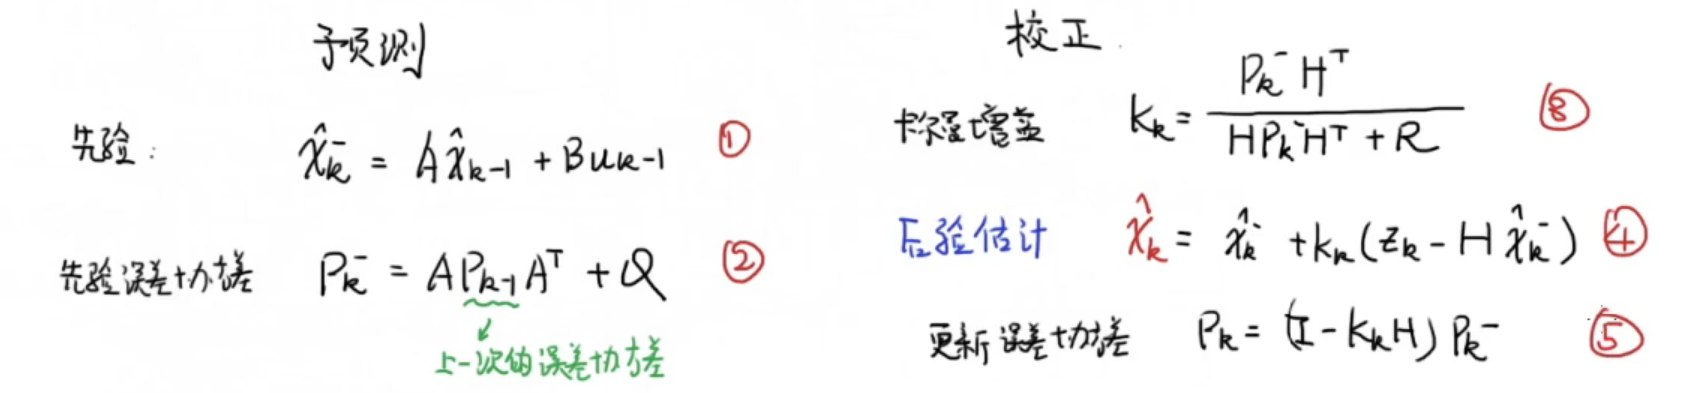 预测
先验: x̂ₖ⁻ = Ax̂ₖ₋₁ + Buₖ₋₁ ①
先验误差协方差 Pₖ⁻ = APₖ₋₁Aᵀ + Q ②
上一次的误差协方差
校正
卡尔曼增益 Kₖ = Pₖ⁻Hᵀ / (HPₖ⁻Hᵀ + R) ③
后验估计 x̂ₖ = x̂ₖ⁻ + Kₖ(zₖ - Hx̂ₖ⁻) ④
更新误差协方差 Pₖ = (I - KₖH)Pₖ⁻ ⑤